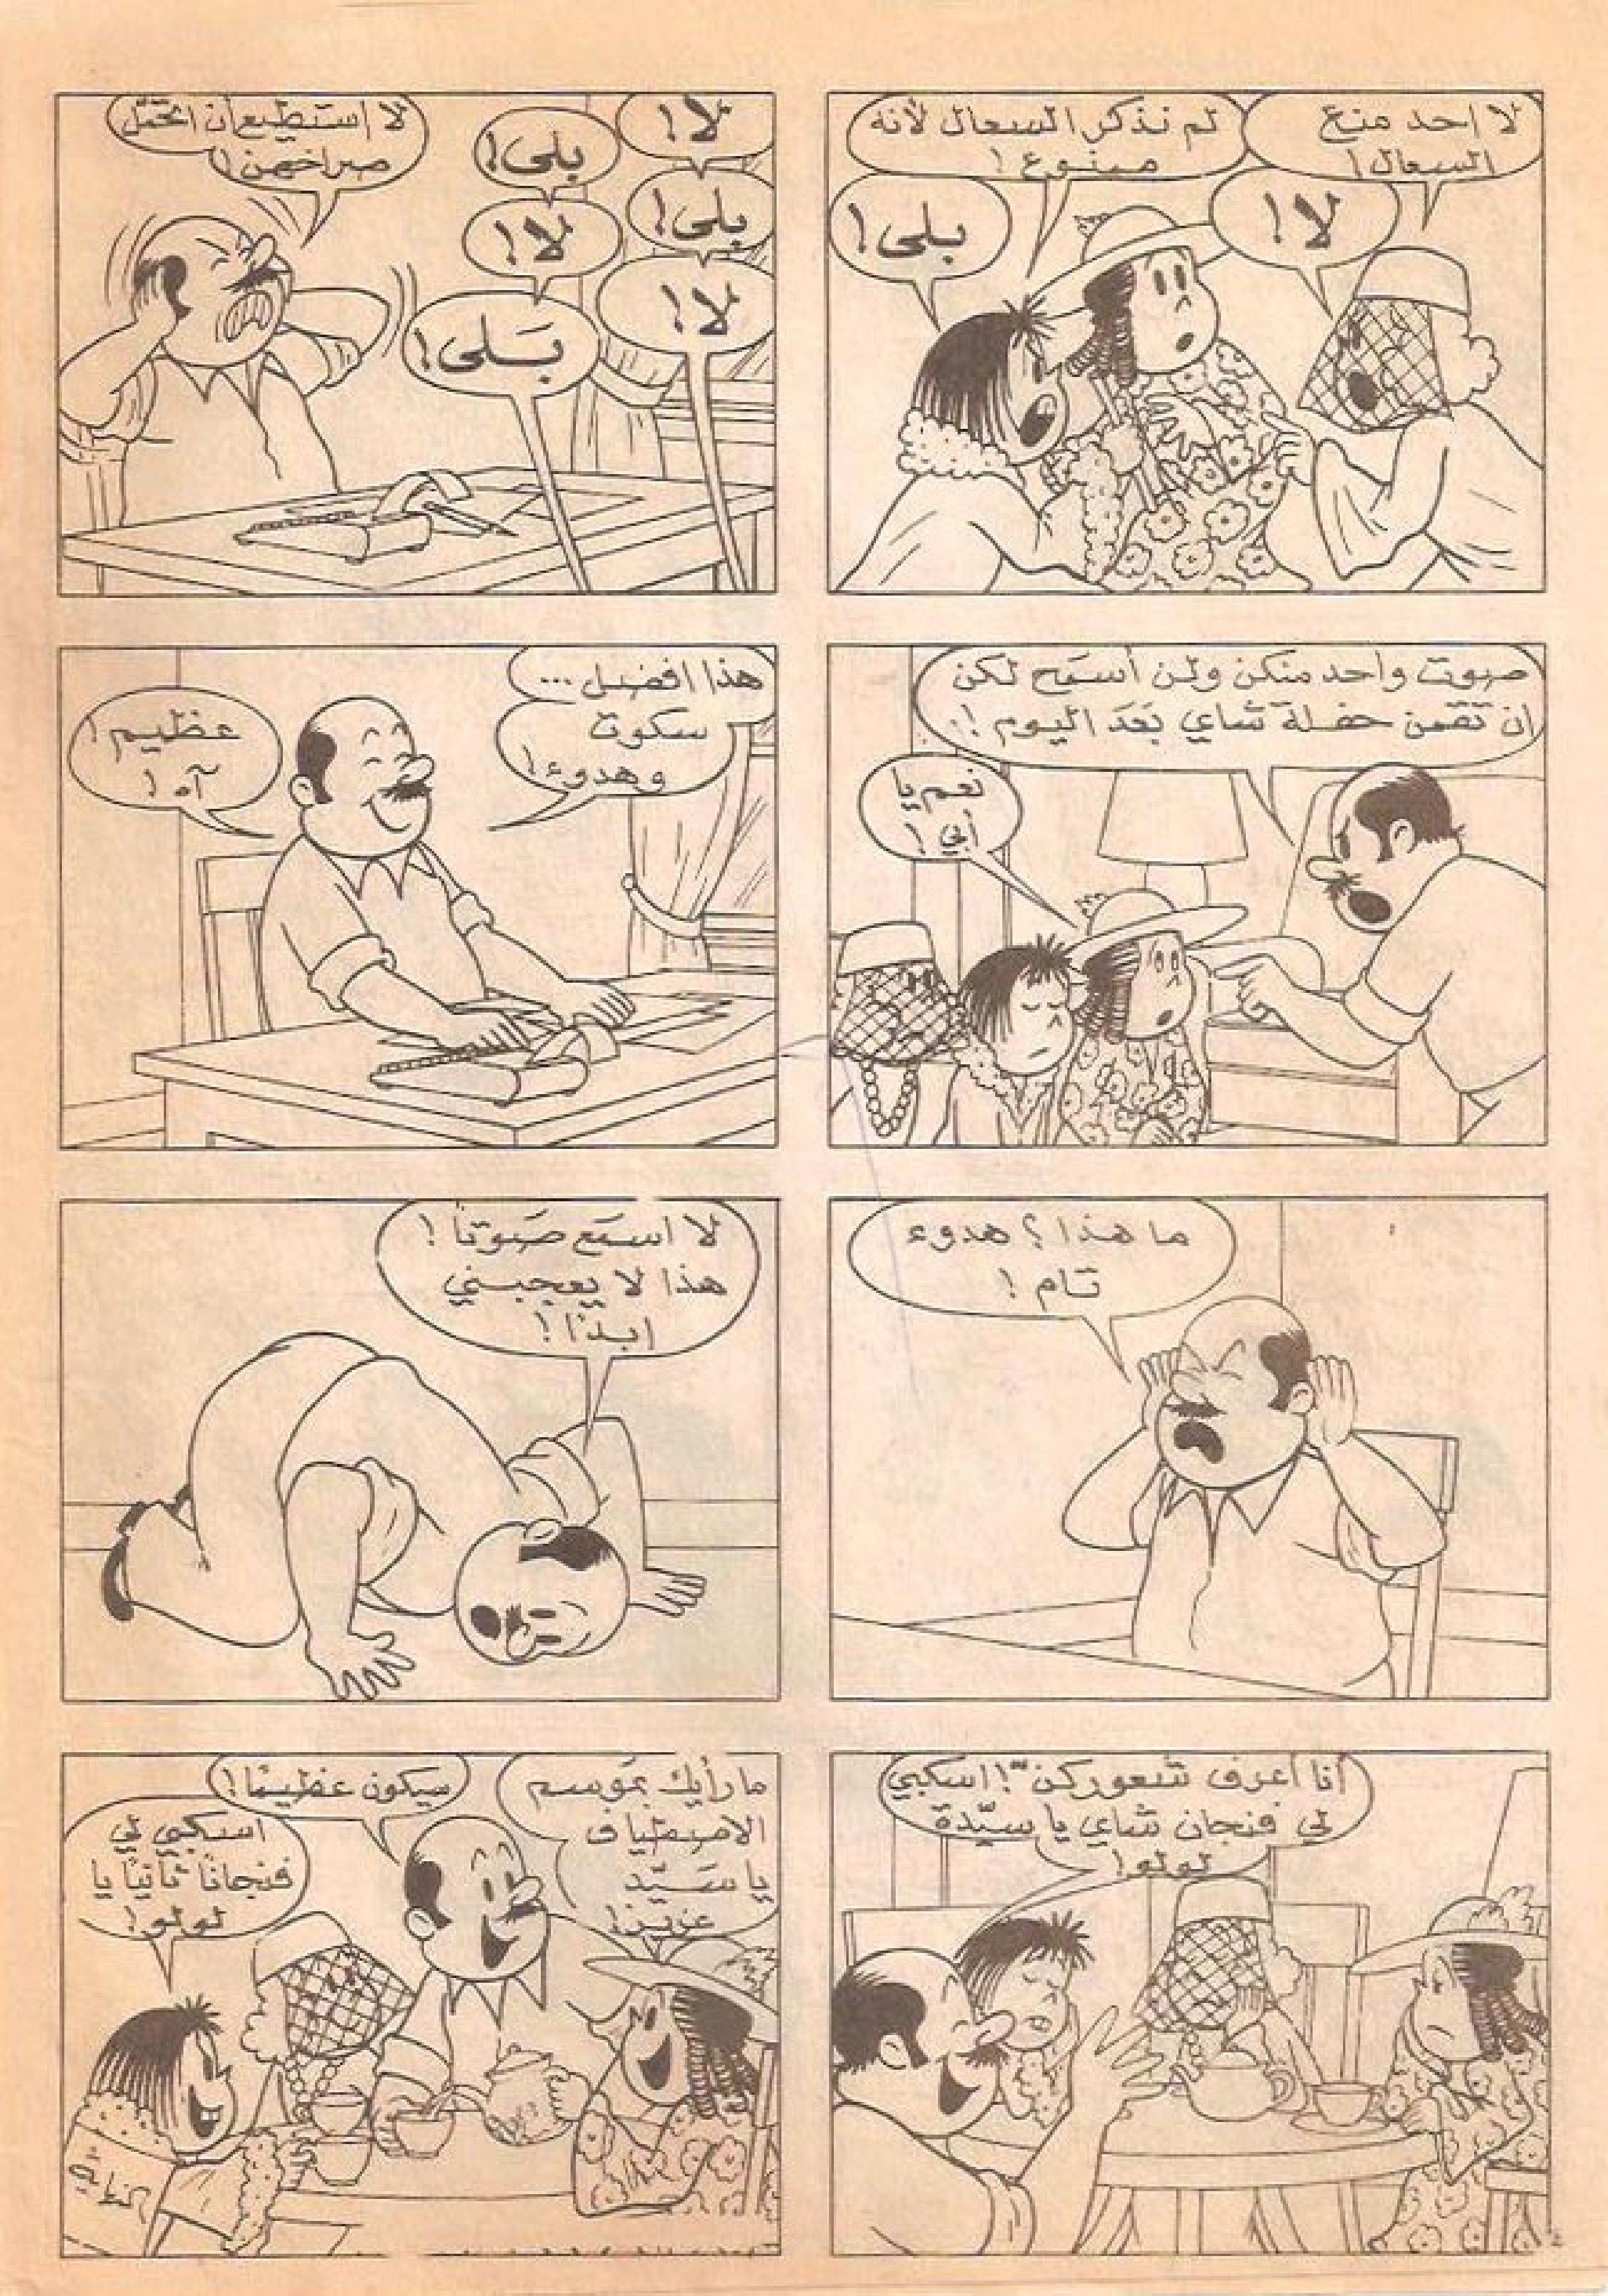 لا احد منع
السعال!
لم نذكر السعال لأنه
ممنوع!
لا!
بلى!
لا!
بلى!
بلى!
لا!
لا!
بَلى!
لا استطيع ان اتحمّل
صراخهن!
صوت واحد منكن ولن أسمَح لكن
ان تقمن حفلة شاي بَعدَ اليوم!!
نعم يا
أبي!
هذا افضل...
سكوت
وهدوء!
عظيم!
آه!
ما هذا؟ هدوء
تام!
لا اسمَع صَوتاً!
هذا لا يعجبني
ابداً!
أنا أعرف شعوركنّ! اسكبي
لي فنجان شاي يا سيّدة
لولو!
ما رأيك بموسم
الاصطياف
يا سَيّد
عزيز!
سيكون عظيمًا!
اسكبي لي
فنجاناً ثانياً يا
لولو!